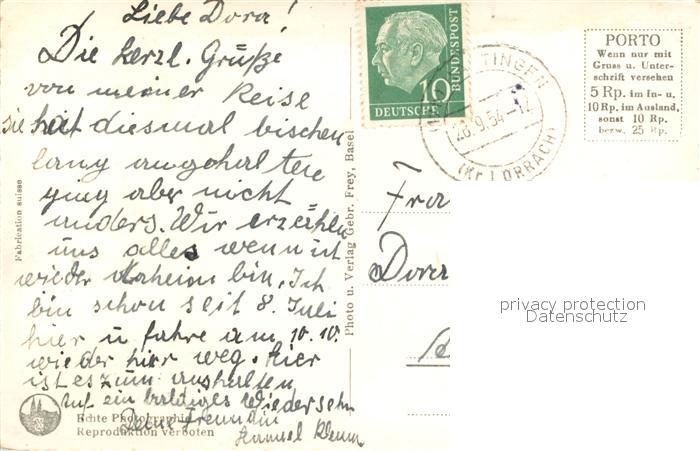 Liebe Dora!
Die herzl. Grüße
von meiner Reise
sie hat diesmal bischen
lang angehalten
ging aber nicht
anders. Wir erzählen
uns alles wenn ich
wieder daheim bin. Ich
bin schon seit 8. Juli
hier u fahre am 10.10.
wieder hier weg. Hier
ist es zum aushalten
Auf ein baldiges Wiedersehn
Deine Freundin
Echte Photographie
Reproduktion verboten
Fabrication suisse
Photo u. Verlag Gebr. Frey, Basel
10
DEUTSCHE
BUNDESPOST
28.9.54-12
(Kr LÖRRACH)
PORTO
Wenn nur mit
Gruss u. Unter-
schrift versehen
5 Rp. im In- u.
10 Rp. im Ausland,
sonst 10 Rp.
bezw. 25 Rp.
Dora
privacy protection
Datenschutz